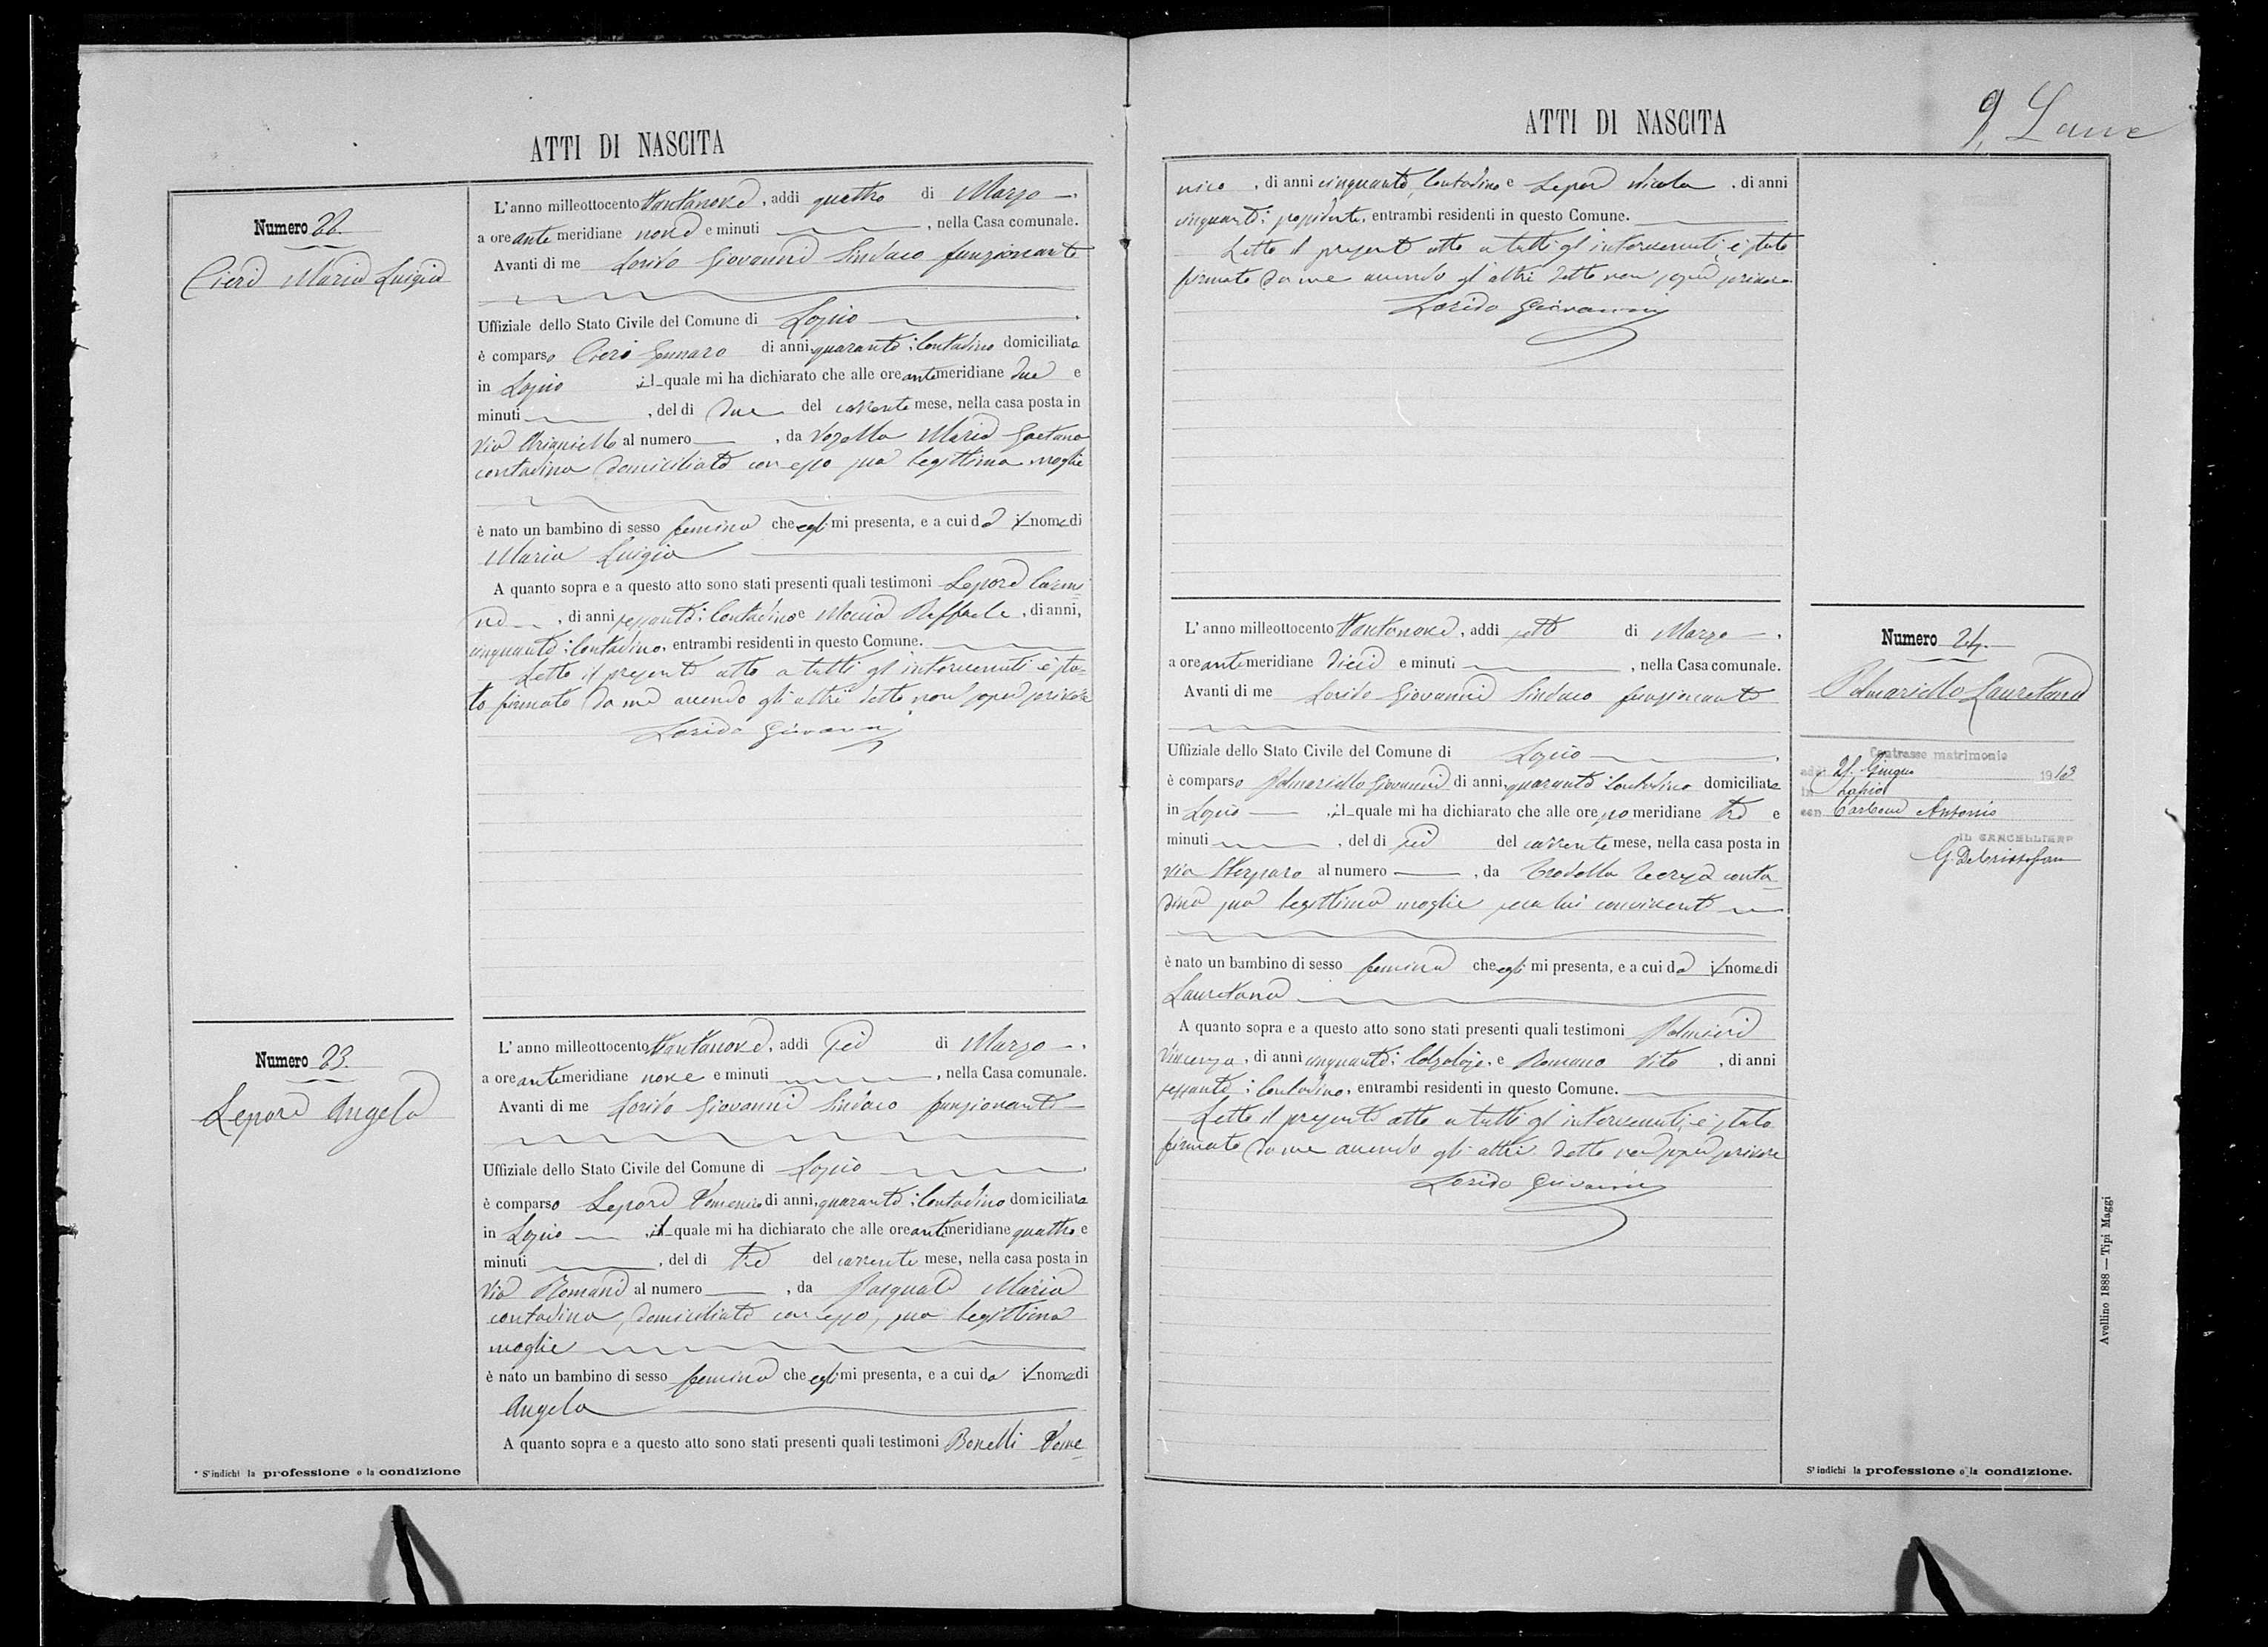 ATTI DI NASCITA
Numero 22.
Cieri Maria Luigia
L'anno milleottocento ottantanove, addi quattro di Marzo
a ore ante meridiane nove e minuti , nella Casa comunale.
Avanti di me Lorido Giovanni Sindaco funzionante
Uffiziale dello Stato Civile del Comune di Lapio
è comparso Cieri Gennaro di anni quaranta; Contadino domiciliato
in Lapio , il quale mi ha dichiarato che alle ore antimeridiane due e
minuti , del di due del corrente mese, nella casa posta in
Via al numero , da Vozella Maria Gaetana
contadina domiciliata con esso sua legittima moglie
è nato un bambino di sesso femina che egli mi presenta, e a cui da il nome di
Maria Luigia
A quanto sopra e a questo atto sono stati presenti quali testimoni Lepore Carmi
ne , di anni sessanta; Contadino e Raffaele , di anni,
cinquanta; Contadino, entrambi residenti in questo Comune.
Letto il presente atto a tutti gl'intervenuti è sta-
to firmato da me avendo gli altri detto non saper scrivere
Lorido Giovanni
Numero 23.
Lepore Angela
L'anno milleottocento ottantanove, addi sei di Marzo
a ore antimeridiane nove e minuti , nella Casa comunale.
Avanti di me Lorido Giovanni Sindaco funzionante
Uffiziale dello Stato Civile del Comune di Lapio
è comparso Lepore Domenico di anni, quaranta; Contadino domiciliato
in Lapio , il quale mi ha dichiarato che alle ore antimeridiane quattro e
minuti , del di tre del corrente mese, nella casa posta in
Via Romano al numero , da Pasquale Maria
contadina, domiciliata con esso, sua legittima
moglie
è nato un bambino di sesso femina che egli mi presenta, e a cui da il nome di
Angela
A quanto sopra e a questo atto sono stati presenti quali testimoni Bonelli Dome-
* S'indichi la professione o la condizione
ATTI DI NASCITA
9,
nico , di anni cinquanta, Contadino e Lepore Nicola , di anni
cinquanta; possidente, entrambi residenti in questo Comune.
Letto il presente atto a tutti gl'intervenuti, è stato
firmato da me avendo gl'altri detto non saper scrivere
Lorido Giovanni
L'anno milleottocento ottantanove, addi sette di Marzo
a ore antimeridiane dieci e minuti , nella Casa comunale.
Avanti di me Lorido Giovanni Sindaco funzionante
Uffiziale dello Stato Civile del Comune di Lapio
è comparso Palmariello Giovanni di anni, quaranta Contadino domiciliato
in Lapio , il quale mi ha dichiarato che alle ore pomeridiane tre e
minuti , del di sei del corrente mese, nella casa posta in
Via al numero , da Teresa conta-
dina sua legittima moglie seco lui convivente
è nato un bambino di sesso femina che egli mi presenta, e a cui da il nome di
Lauretana
A quanto sopra e a questo atto sono stati presenti quali testimoni Palmieri
Vincenzo, di anni cinquanta; Calzolajo, e Romano Vito , di anni
sessanta; Contadino, entrambi residenti in questo Comune.
Letto il presente atto a tutti gl'intervenuti, è stato
firmato da me avendo gli altri detto non saper scrivere
Lorido Giovanni
Numero 24.
Palmariello Lauretana
Contrasse matrimonio
addi 21 Giugno 1913
in Lapio
con Carbone Antonio
IL CANCELLIERE
S'indichi la professione o la condizione.
Avellino 1888 — Tipi Maggi